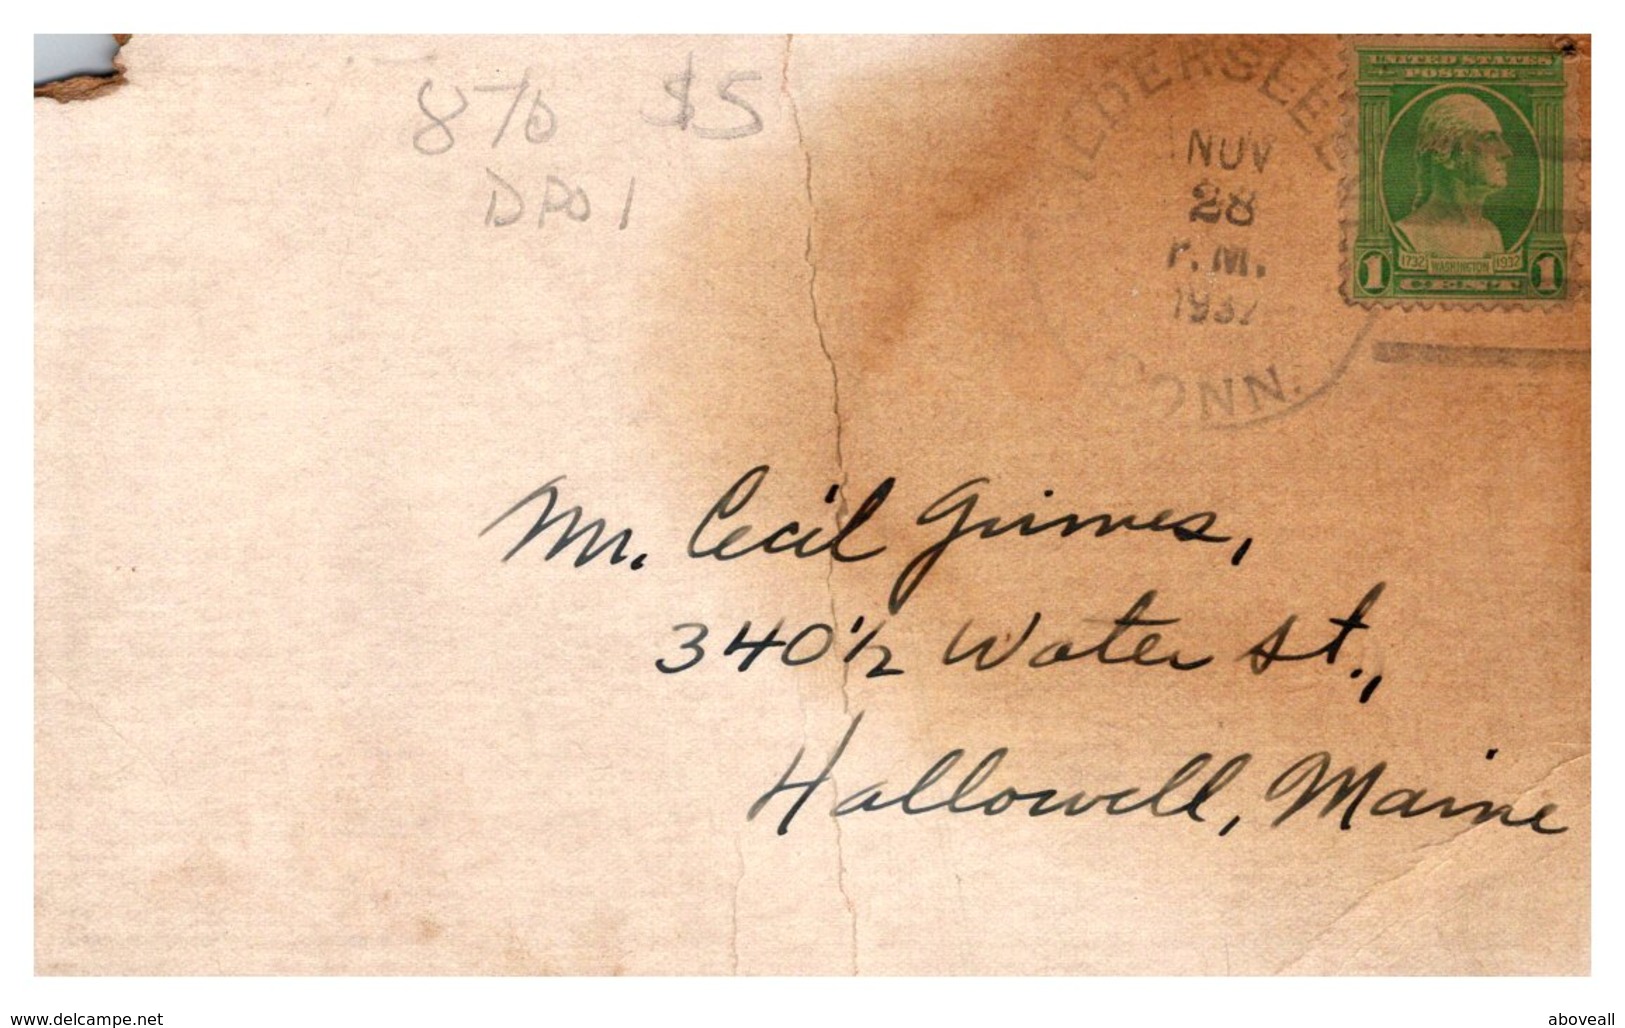 870 $5
DPO 1
NOV
28
P.M.
1932
CONN.
UNITED STATES
POSTAGE
1732 WASHINGTON 1932
1 CENT 1
Mr. Cecil Grimes,
340 1/2 Water St.,
Hallowell, Maine
www.delcampe.net
aboveall